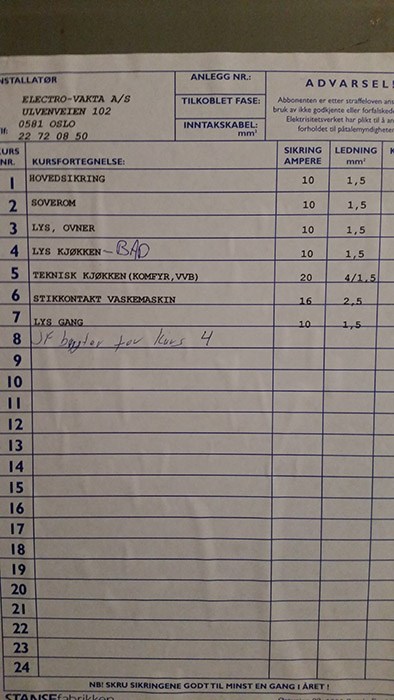 NSTALLATØR
ELECTRO-VAKTA A/S
ULVENVEIEN 102
0581 OSLO
Tlf: 22 72 08 50
ANLEGG NR.:
TILKOBLET FASE:
INNTAKSKABEL:
mm²
ADVARSEL!
Abbonenten er etter straffeloven ans
bruk av ikke godkjente eller forfalskede
Elektrisitetsverket har plikt til å an
forholdet til påtalemyndigheter
KURS NR. KURSFORTEGNELSE: SIKRING AMPERE LEDNING mm² K
1 HOVEDSIKRING 10 1,5
2 SOVEROM 10 1,5
3 LYS, OVNER 10 1,5
4 LYS KJØKKEN - BAD 10 1,5
5 TEKNISK KJØKKEN(KOMFYR,VVB) 20 4/1,5
6 STIKKONTAKT VASKEMASKIN 16 2,5
7 LYS GANG 10 1,5
8 JF bryter for kurs 4
9
10
11
12
13
14
15
16
17
18
19
20
21
22
23
24
NB! SKRU SIKRINGENE GODT TIL MINST EN GANG I ÅRET!
STANSEfabrikken